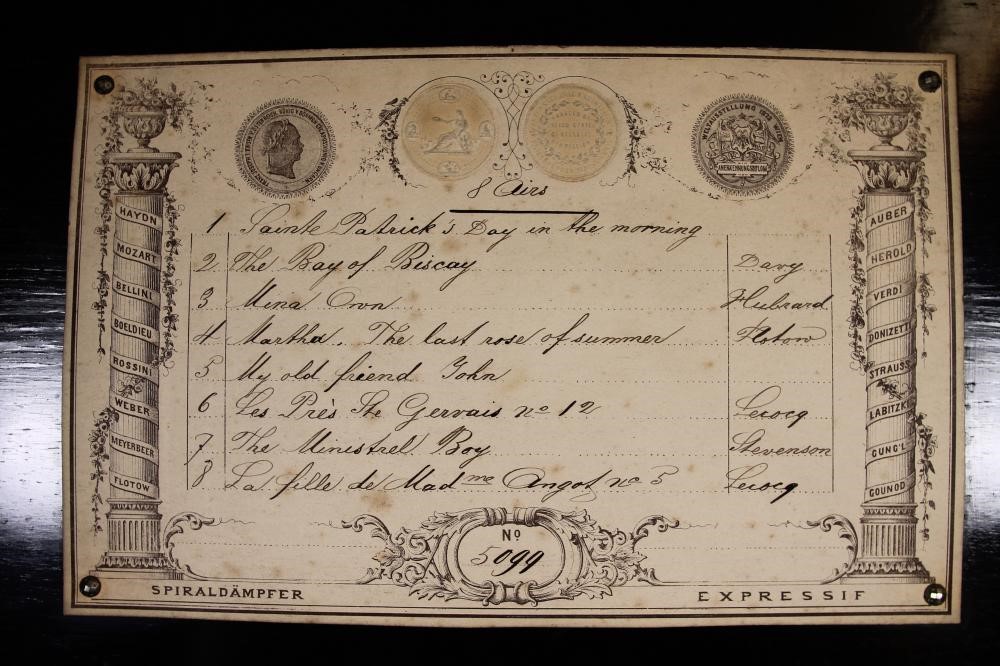 WELTAUSSTELLUNG 1873 WIEN
ANERKENNUNGSDIPLOM
8 Airs
1 Sainte Patrick's Day in the morning
2 The Bay of Biscay Davy
3 Mina Ovn Hubrard
4 Martha. The last rose of summer Flotow
5 My old friend John
6 Les Près Ste Gervais no 12 Lecocq
7 The Minestrel Boy Stevenson
8 La fille de Madme Angot no 5 Lecocq
HAYDN
MOZART
BELLINI
BOELDIEU
ROSSINI
WEBER
MEYERBEER
FLOTOW
AUBER
HEROLD
VERDI
DONIZETTI
STRAUSS
LABITZKI
GUNG'L
GOUNOD
No
5099
SPIRALDÄMPFER EXPRESSIF